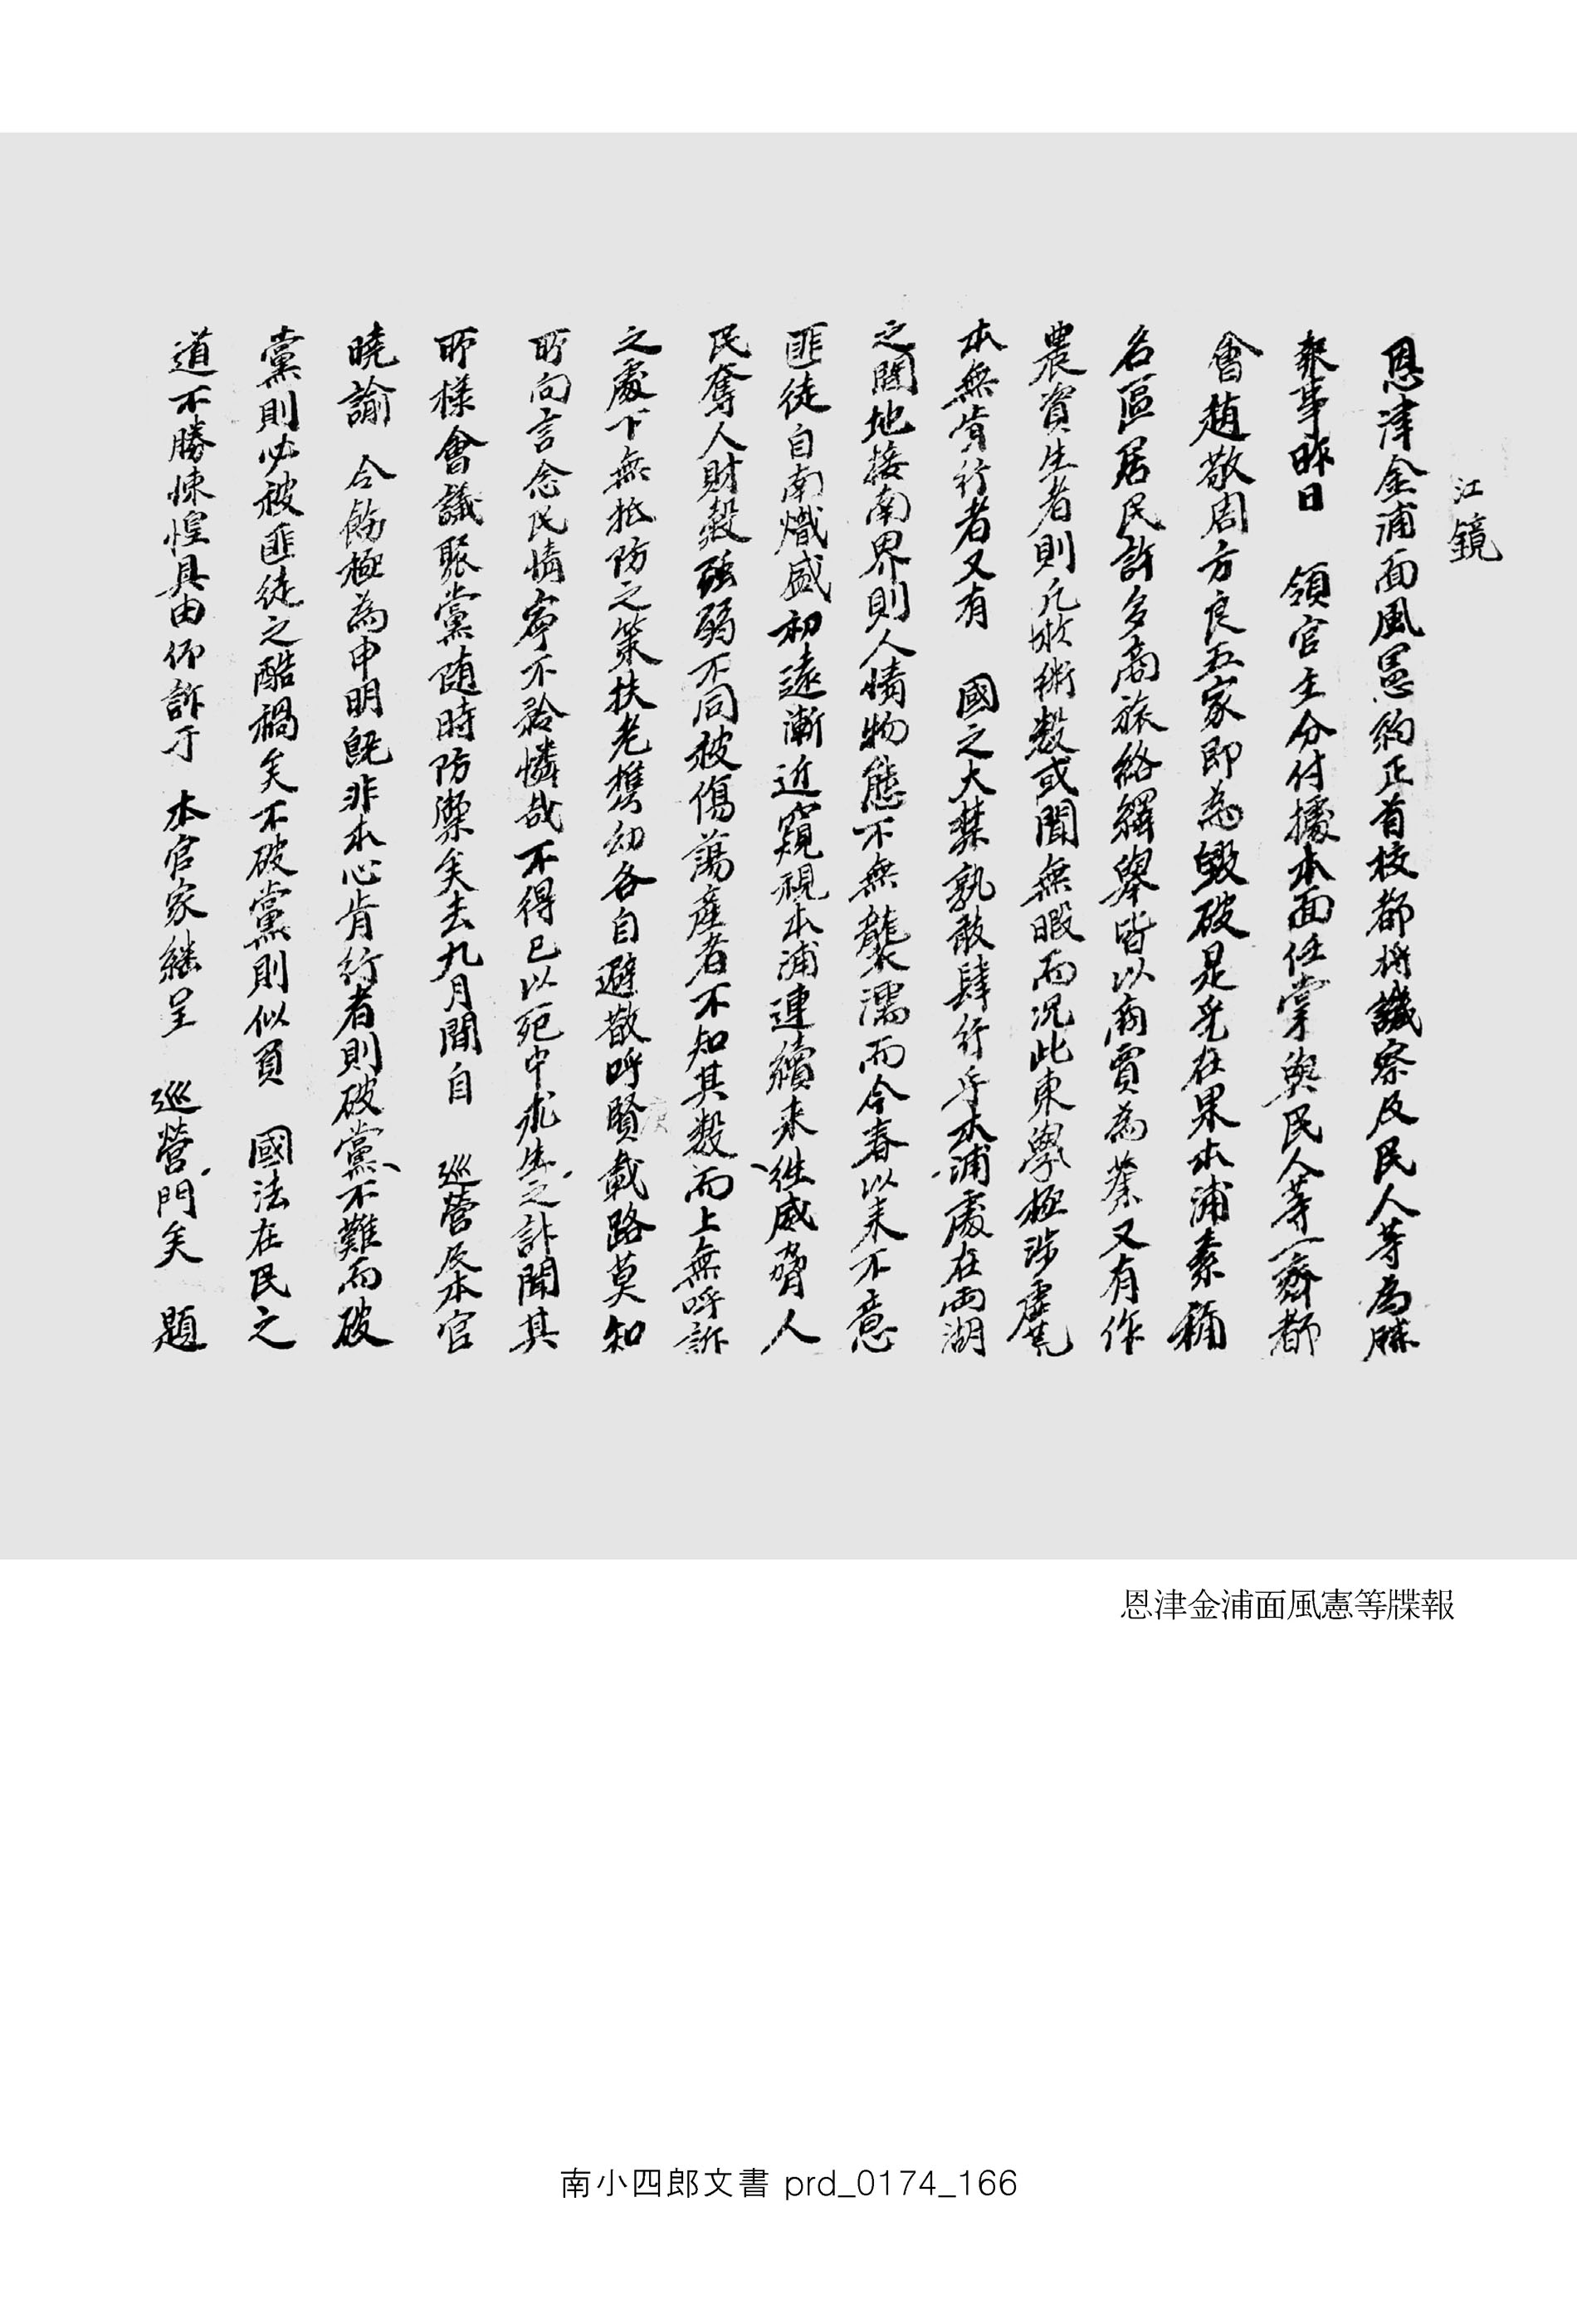 江鏡
恩津金浦面風憲約正首校都將譏察及民人等為牒
報事昨日 領官主分付據本面任掌與民人等一齊都
會趙敬周方良五家即為毀破是乎在果本浦素稱
名區居民許多商旅絡繹舉皆以商賈為業又有作
農資生者則凡於術數或聞無暇而況此東學極涉虛荒
本無肯行者又有 國之大禁孰敢肆行乎本浦處在兩湖
之間地接南界則人情物態不無襲濡而今春以来不意
匪徒自南熾盛初遠漸近窺視本浦連續来往威脅人
民奪人財穀強弱不同被傷蕩産者不知其數而上無呼訴
之處下無抵防之策扶老携幼各自避散呼賢載路莫知
所向言念民情寧不矜憐哉不得已以死中求生之計聞其
所樣會議聚黨随時防禦矣去九月間自 巡營及本官
曉諭 令飭極為申明旣非本心肯行者則破黨不難而破
黨則必被匪徒之酷禍矣不破黨則似負 國法在民之
道不勝悚惶具由仰訴于 本官家継呈 巡營門矣 題
恩津金浦面風憲等牒報
南小四郎文書 prd_0174_166